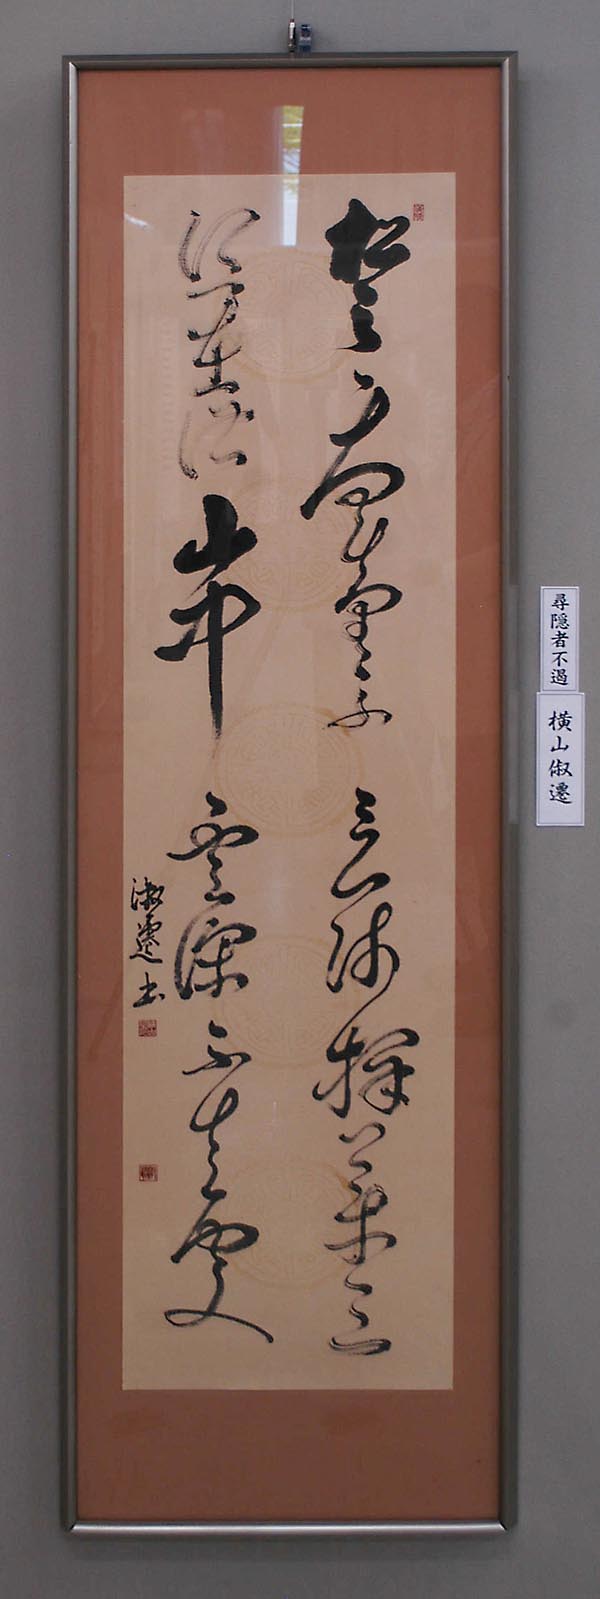 松下問童子 言師採薬去
只在此山中 雲深不知處
俶遷書
尋隠者不遇
横山俶遷